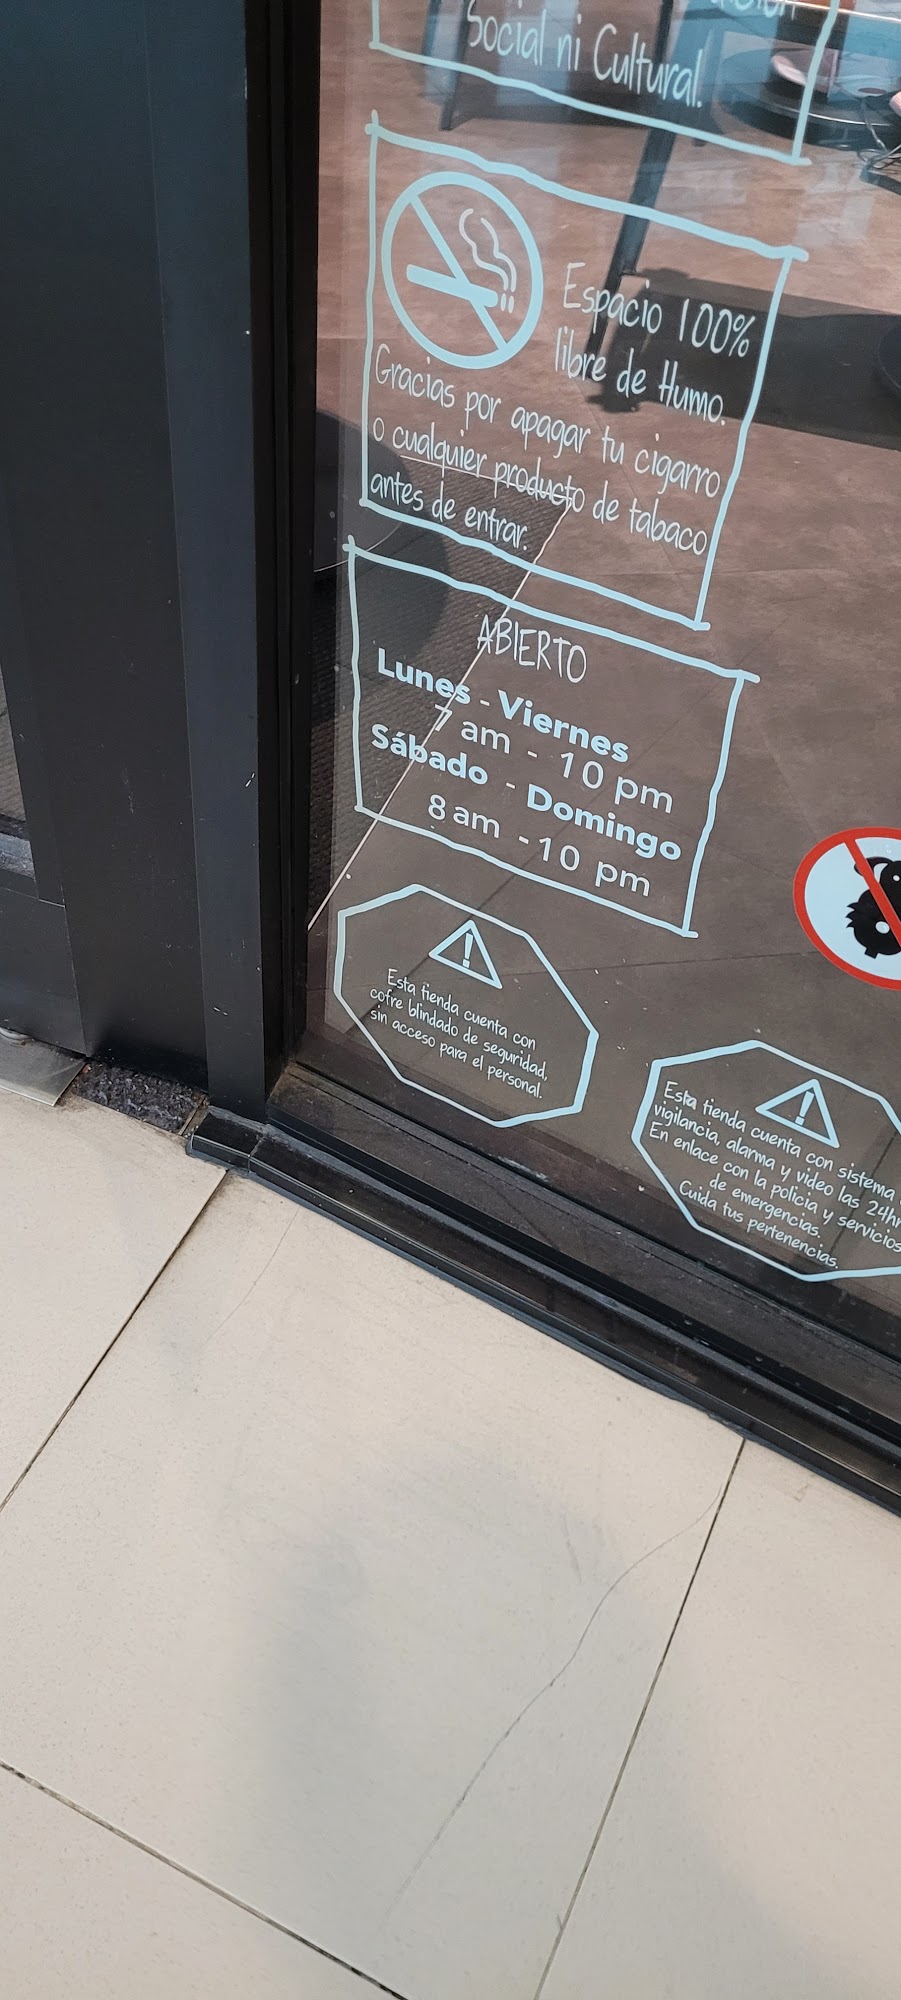 Social ni Cultural.
Espacio 100%
libre de Humo.
Gracias por apagar tu cigarro
o cualquier producto de tabaco
antes de entrar.
ABIERTO
Lunes - Viernes
7 am - 10 pm
Sábado - Domingo
8 am - 10 pm
Esta tienda cuenta con
cofre blindado de seguridad,
sin acceso para el personal.
Esta tienda cuenta con sistema
vigilancia, alarma y video las 24hr
En enlace con la policia y servicios
de emergencias.
Cuida tus pertenencias.